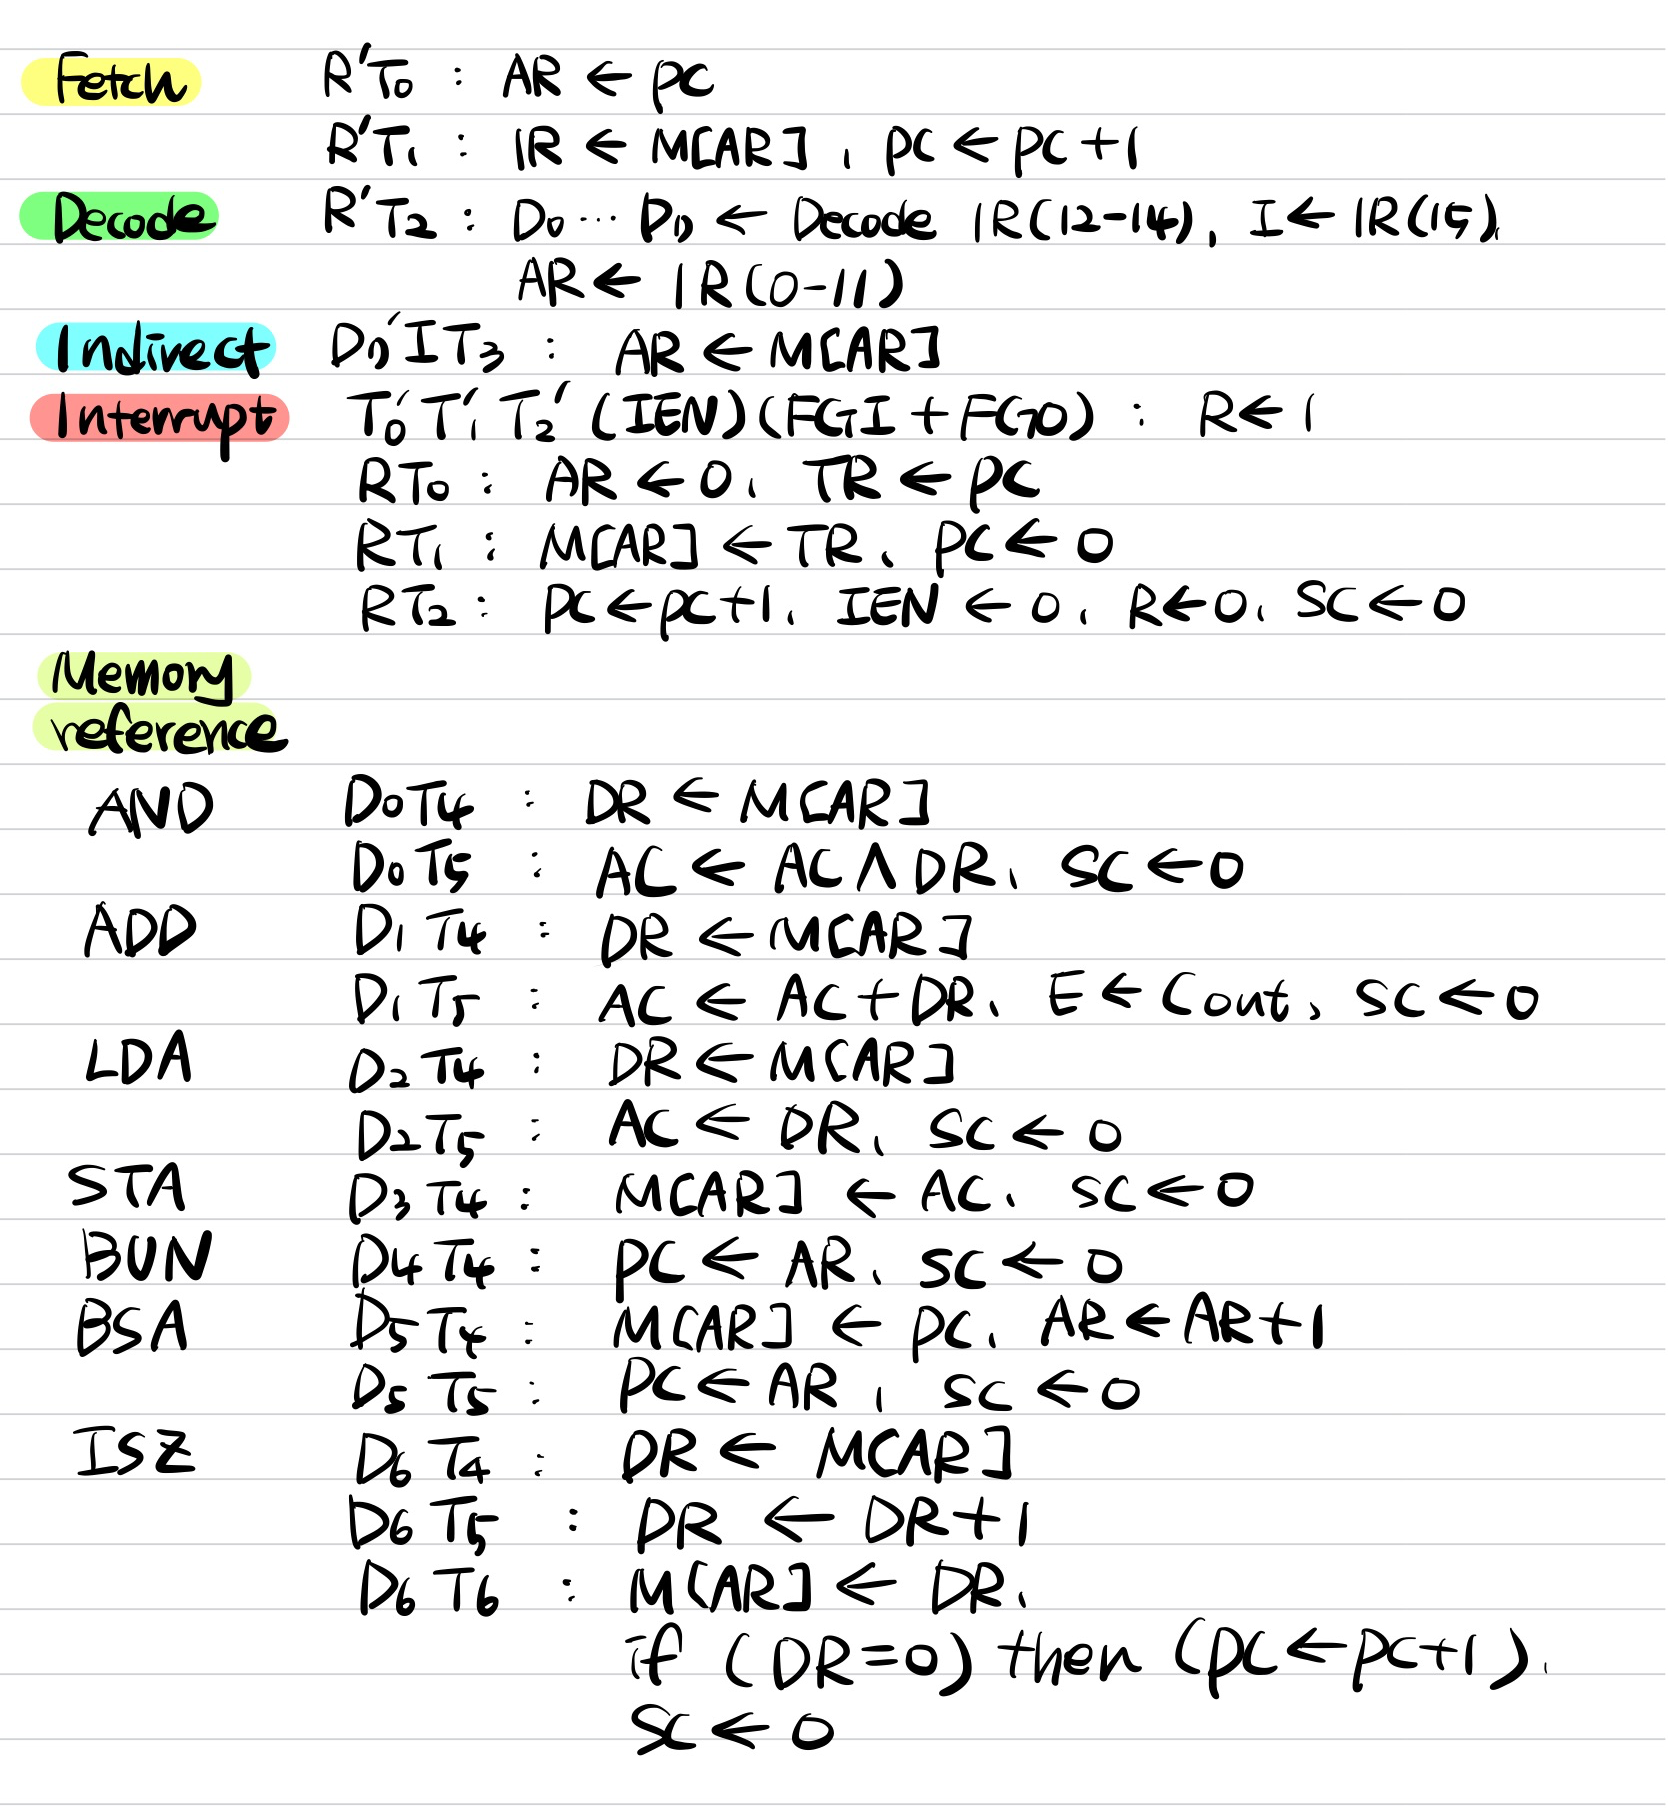 Fetch R'T₀ : AR ← PC
R'T₁ : IR ← M[AR], PC ← PC+1
Decode R'T₂ : D₀ ··· D₇ ← Decode IR(12-14), I ← IR(15),
AR ← IR(0-11)
Indirect D₇'IT₃ : AR ← M[AR]
Interrupt T₀'T₁'T₂'(IEN)(FGI+FGO) : R ← 1
RT₀ : AR ← 0, TR ← PC
RT₁ : M[AR] ← TR, PC ← 0
RT₂ : PC ← PC+1, IEN ← 0, R ← 0, SC ← 0
Memory
reference
AND D₀T₄ : DR ← M[AR]
D₀T₅ : AC ← AC ∧ DR, SC ← 0
ADD D₁T₄ : DR ← M[AR]
D₁T₅ : AC ← AC+DR, E ← Cout, SC ← 0
LDA D₂T₄ : DR ← M[AR]
D₂T₅ : AC ← DR, SC ← 0
STA D₃T₄ : M[AR] ← AC, SC ← 0
BUN D₄T₄ : PC ← AR, SC ← 0
BSA D₅T₄ : M[AR] ← PC, AR ← AR+1
D₅T₅ : PC ← AR, SC ← 0
ISZ D₆T₄ : DR ← M[AR]
D₆T₅ : DR ← DR+1
D₆T₆ : M[AR] ← DR,
if (DR=0) then (PC ← PC+1),
SC ← 0